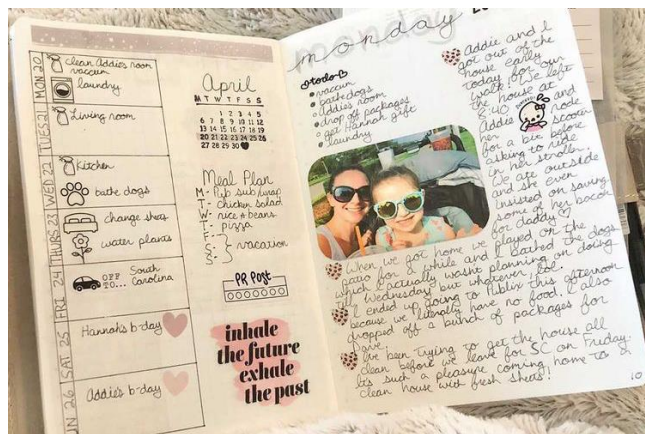 MON 20
clean Addie's room
vaccum
laundry
TUES 21
Living room
WED 22
Kitchen
bathe dogs
THURS 23
change sheets
water plants
FRI 24
OFF TO...
South Carolina
SAT 25
Hannah's b-day
UN 26
Addie's b-day
April
M T W T F S S
1 2 3 4 5
6 7 8 9 10 11 12
13 14 15 16 17 18 19
20 21 22 23 24 25 26
27 28 29 30
Meal Plan
M- Pub sub/wrap
T- chicken salad
W- rice + beans
T- pizza
F-
S- vacation
S-
PR POST
inhale
the future
exhale
the past
monday
monday
todo
vaccum
bathe dogs
Addie's room
drop off packages
get Hannah gift
laundry
Addie and I
got out of the
house early
today for our
walk. We left
the house at
8:40
Addie rode
her scooter
for a bit before
asking to ride
in her stroller.
We ate outside
and she even
insisted on saving
some of her bacon
for daddy
When we got home we played on the
patio for a while and I bathed the dogs
which I actually wasn't planning on doing
till Wednesday but whatever, lol.
I ended up going to Publix this afternoon
because we literally have no food. I also
dropped off a bunch of packages for
Dave.
I've been trying to get the house all
clean before we leave for SC on Friday.
Its such a pleasure coming home to a
clean house with fresh sheets!
10